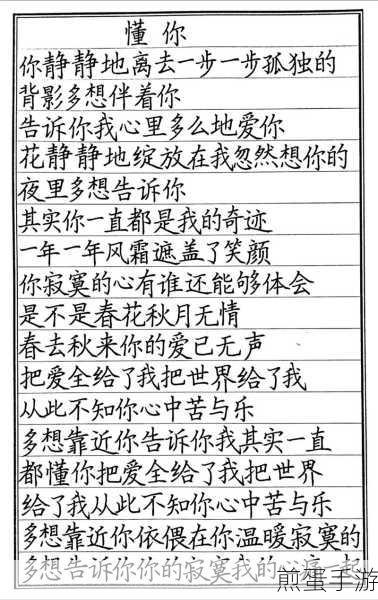 懂你
你静静地离去一步一步孤独的
背影多想伴着你
告诉你我心里多么地爱你
花静静地绽放在我忽然想你的
夜里多想告诉你
其实你一直都是我的奇迹
一年一年风霜遮盖了笑颜
你寂寞的心有谁还能够体会
是不是春花秋月无情
春去秋来你的爱已无声
把爱全给了我把世界给了我
从此不知你心中苦与乐
多想靠近你告诉你我其实一直
都懂你把爱全给了我把世界
给了我从此不知你心中苦与乐
多想靠近你依偎在你温暖寂寞的
多想告诉你你的寂寞我的心痛一起
煎蛋手游